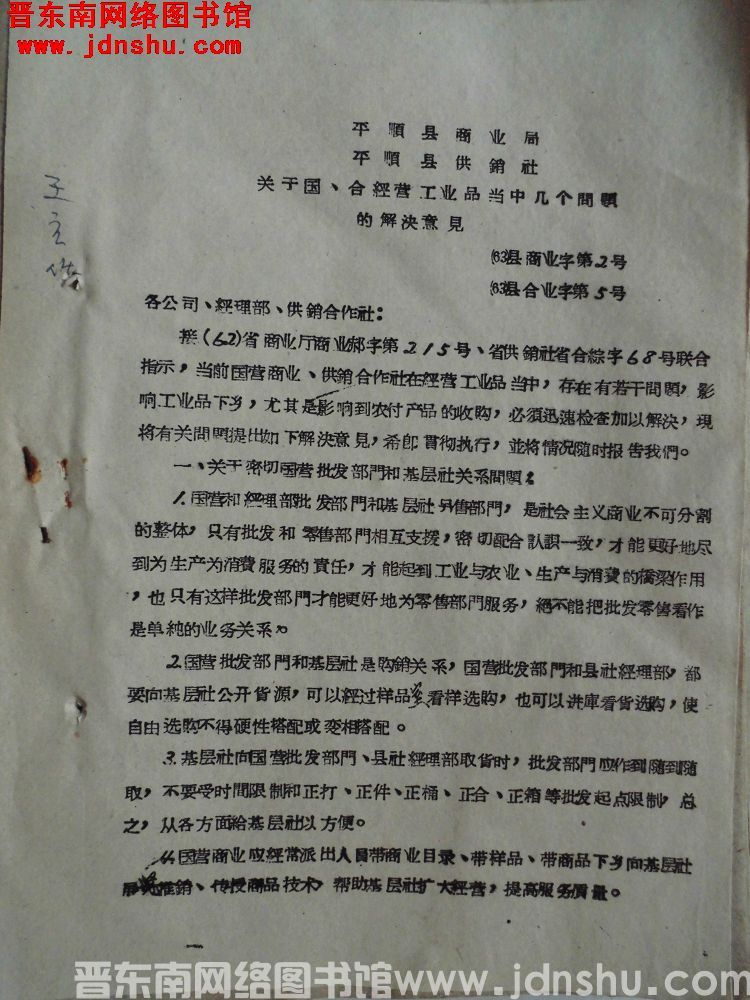 晋东南网络图书馆
www.jdnshu.com
平順县商业局
平順县供銷社
关于国、合經营工业品当中几个問題
的解决意見
(63)县商业字第2号
(63)县合业字第5号
王主
各公司、經理部、供銷合作社：
接(62)省商业厅商业郝字第215号、省供銷社省合綜字68号联合
指示，当前国营商业、供銷合作社在經营工业品当中，存在有若干問題，影
响工业品下乡，尤其是影响到农付产品的收购，必須迅速检查加以解决，現
将有关問題提比如下解决意見，希即貫彻执行，並将情况随时报告我們。
一、关于密切国营批发部門和基层社关系問題：
1.国营和經理部批发部門和基层社另售部門，是社会主义商业不可分割
的整体，只有批发和零售部門相互支援，密切配合認識一致，才能更好地尽
到为生产为消費服务的責任，才能起到工业与农业、生产与消費的橋梁作用
，也只有这样批发部門才能更好地为零售部門服务，絕不能把批发零售看作
是单純的业务关系。
2.国营批发部門和基层社是购銷关系，国营批发部門和县社經理部，都
要向基层社公开貨源，可以經过样品看样选购，也可以进庫看貨选购，使
自由选购不得硬性搭配或变相搭配。
3.基层社向国营批发部門、县社經理部取貨时，批发部門应作到随到随
取，不要受时間限制和正打、正件、正桶、正合、正箱等批发起点限制，总
之，从各方面給基层社以方便。
4.国营商业应經常派出人員带商业目录、带样品、带商品下乡向基层社
推銷、传授商品技术，帮助基层社扩大經营，提高服务質量。
一
晋东南网络图书馆www.jdnshu.com